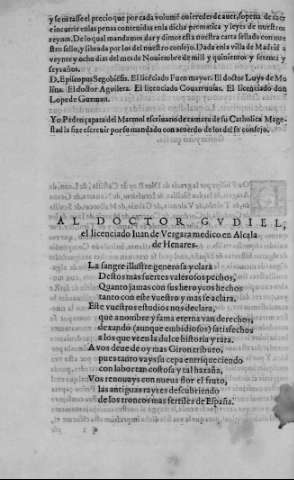 y se tasse el precio que por cada volumē ouieredes de auer, so pena de caer
e incurrir en las penas contenidas en la dicha prematica y leyes de nuestros
reynos. De lo qual mandamos dar y dimos esta nuestra carta sellada con nuestro
sello, y librada por los del nuestro consejo. Dada en la villa de Madrid a
veynte y ocho dias del mes de Nouiembre de mill y quinientos y setenta y
seys años.
D, Episcopus Segobiēsis. El licēciado Fuen mayor. El doctor Luys de Molina.
El doctor Aguilera. El licenciado Couarruuias. El licenciado don
Lope de Guzman.
Yo Pedro çapata del Marmol escriuano de camara de su Catholica Magestad
la fize escreuir por su mandado con acuerdo de los de su consejo.
AL DOCTOR GVDIEL,
el licenciado Iuan de Vergara medico en Alcala
de Henares.
La sangre illustre generosa y clara
Destos mas fuertes valerosos pechos,
Quanto jamas con sus heroycos hechos
tanto con este vuestro y mas se aclara.
Este vuestro estudio nos declara,
que a nombre y fama eterna van derechos,
dexando (aunque embidiosos) satisfechos
a los que veen la dulce historia y rara.
A vos deue de oy mas Giron tributo,
pues tanto vays su cepa enrriqueciendo
con labor tan costosa y tal hazaña,
Vos renouays con nueua flor el fruto,
las antiguas rayzes descubriendo
de los troncos mas fertiles de España.